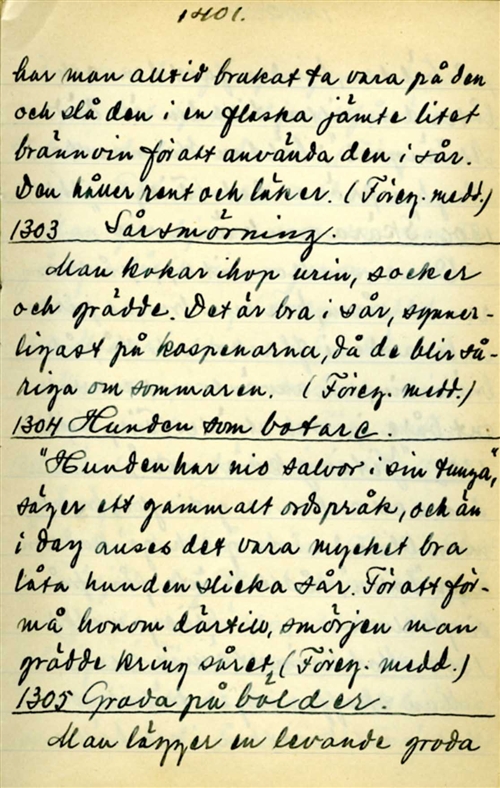 1401.
har man alltid brukat ta vara på den
och slå den i en flaska jämte litet
brännvin för att använda den i sår.
Den håller rent och läker. (Föreg. medd.)
1303 Sårsmörning.
Man kokar ihop urin, socker
och grädde. Det är bra i sår, synner-
ligast på kospenarna, då de blir så-
riga om sommaren. (Föreg. medd.)
1304 Hunden som botare.
"Hunden har nio salvor i sin tunga",
säger ett gammalt ordspråk, och än
i dag anses det vara mycket bra
låta hunden slicka sår. För att för-
må honom därtill, smörjen man
grädde kring såret. (Föreg. medd.)
1305 Groda på bölder.
Man lägger en levande groda